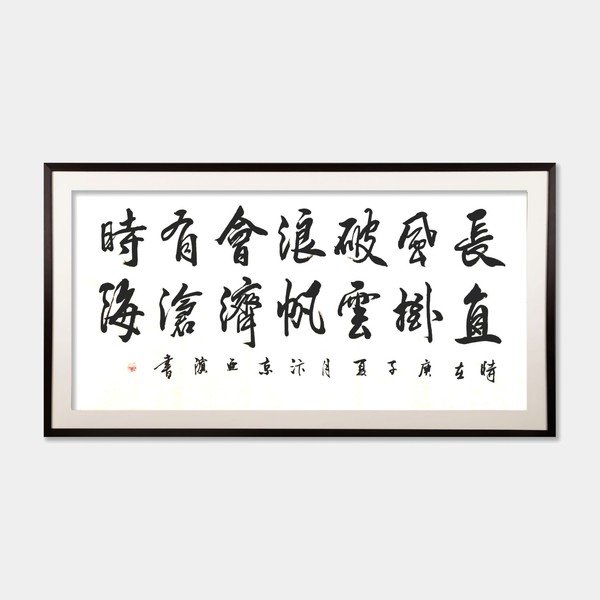 長風破浪會有時
直掛雲帆濟滄海
時在庚子夏月汴京亞書